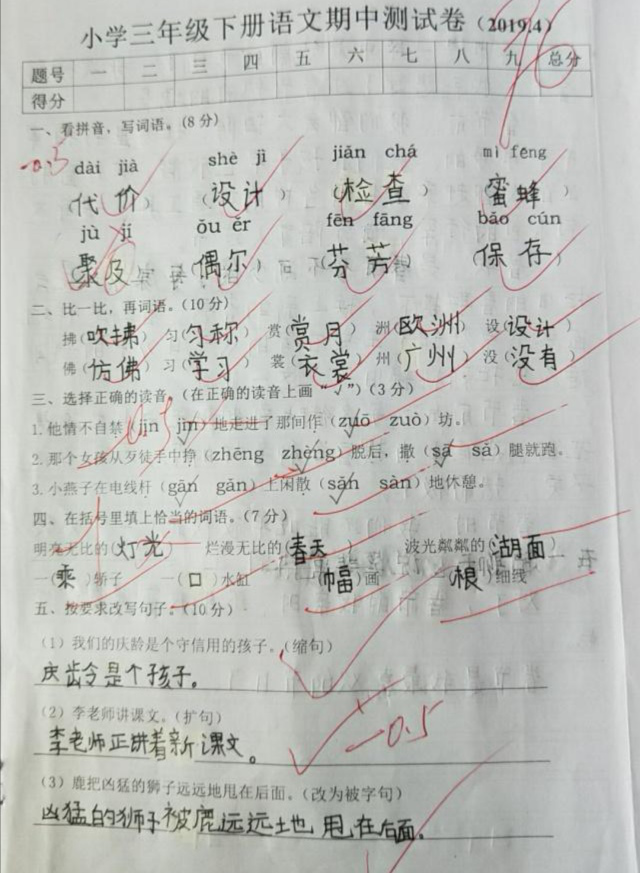 小学三年级下册语文期中测试卷（2019.4）
题号 一 二 三 四 五 六 七 八 九 总分
得分
一、看拼音，写词语。(8分)
-0.5
dài jià shè jì jiǎn chá mì fēng
(代价) (设计) (检查) (蜜蜂)
jù jí ǒu ěr fēn fāng bǎo cún
(聚及) (偶尔) (芬芳) (保存)
二、比一比，再词语。(10分)
拂(吹拂) 匀(匀称) 赏(赏月) 洲(欧洲) 设(设计)
佛(仿佛) 习(学习) 裳(衣裳) 州(广州) 没(没有)
三、选择正确的读音。(在正确的读音上画“✓”)(3分)
1.他情不自禁(jīn jìn)地走进了那间作(zuō zuò)坊。
2.那个女孩从歹徒手中挣(zhēng zhèng)脱后，撒(sā sǎ)腿就跑。
3.小燕子在电线杆(gān gǎn)上闲散(sǎn sàn)地休憩。
四、在括号里填上恰当的词语。(7分)
明亮无比的(灯光) 烂漫无比的(春天) 波光粼粼的(湖面)
一(乘)轿子 一(口)水缸 (幅)画 (根)细线
五、按要求改写句子。(10分)
（1）我们的庆龄是个守信用的孩子。(缩句)
庆龄是个孩子。
（2）李老师讲课文。(扩句)
-0.5
李老师正讲着新课文。
（3）鹿把凶猛的狮子远远地甩在后面。(改为被字句)
凶猛的狮子被鹿远远地甩在后面。